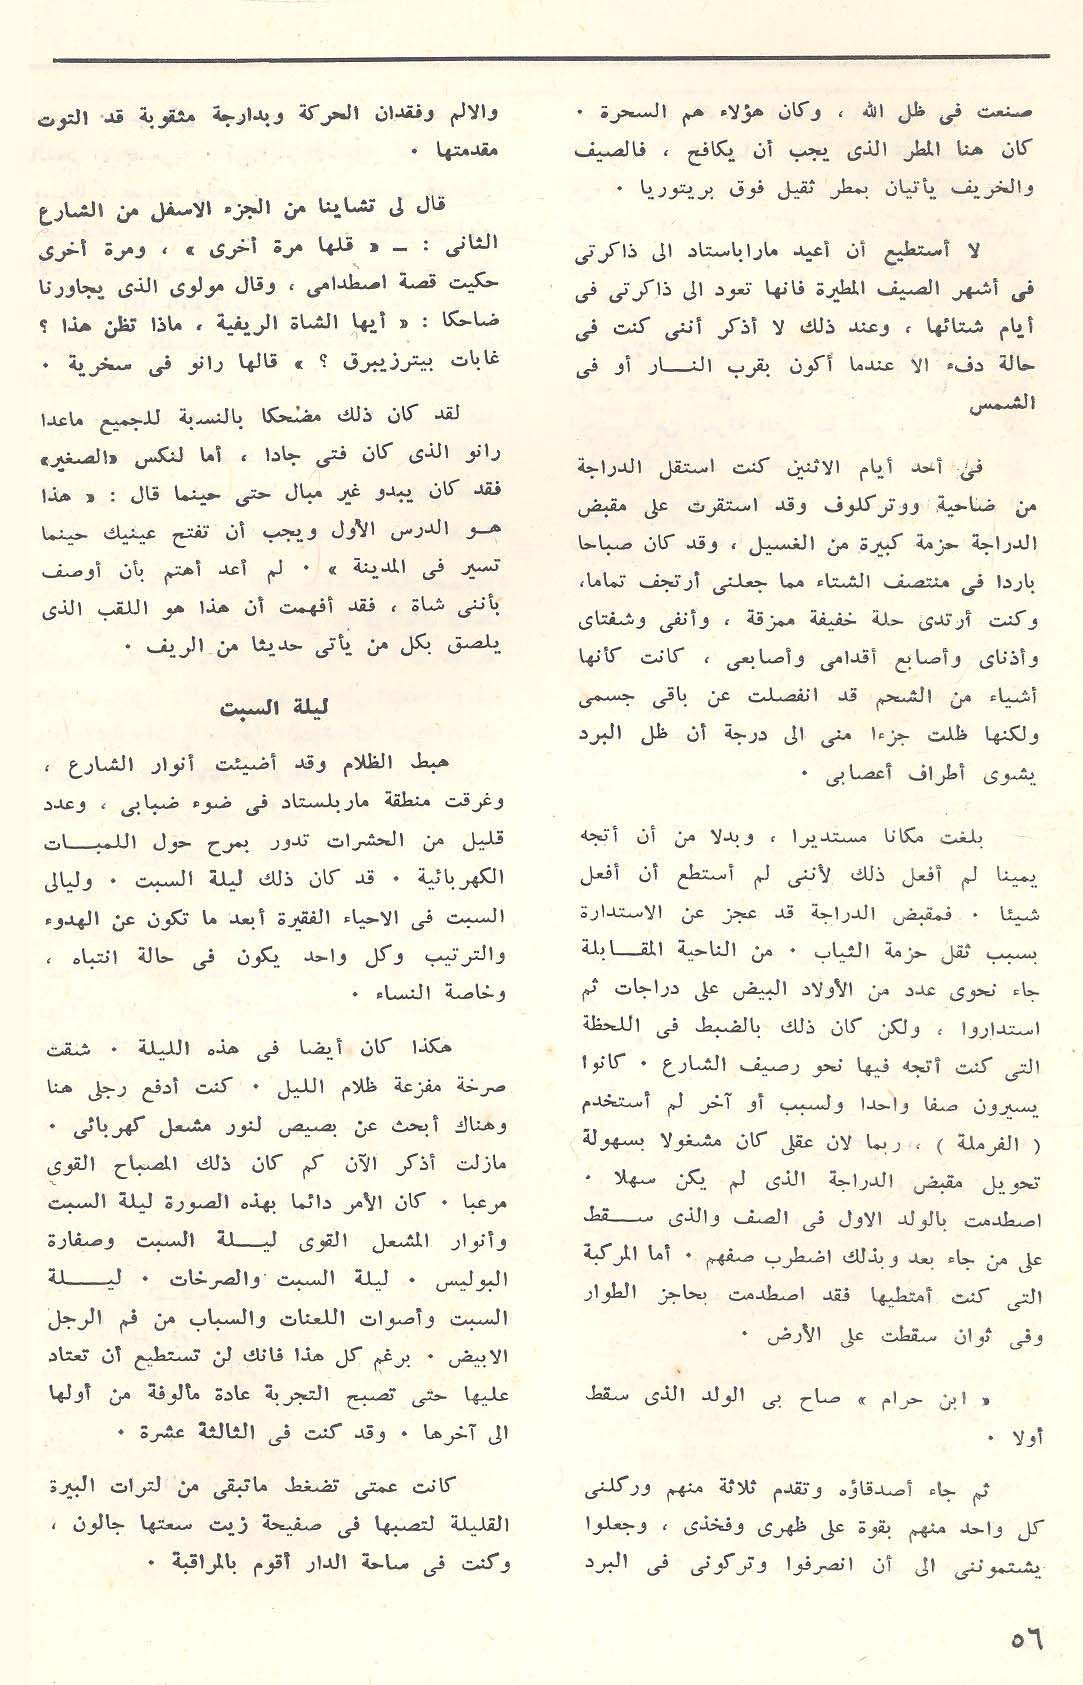 صنعت فى ظل الله ، وكان هؤلاء هم السحرة ٠
كان هنا المطر الذى يجب أن يكافح ، فالصيف
والخريف يأتيان بمطر ثقيل فوق بريتوريا ٠
لا أستطيع أن أعيد ماراباستاد الى ذاكرتى
فى أشهر الصيف المطيرة فانها تعود الى ذاكرتى فى
أيام شتائها ، وعند ذلك لا أذكر أننى كنت فى
حالة دفء الا عندما أكون بقرب النـــار أو فى
الشمس
فى أحد أيام الاثنين كنت استقل الدراجة
من ضاحية ووتركلوف وقد استقرت على مقبض
الدراجة حزمة كبيرة من الغسيل ، وقد كان صباحا
باردا فى منتصف الشتاء مما جعلنى أرتجف تماما،
وكنت أرتدى حلة خفيفة ممزقة ، وأنفى وشفتاى
وأذناى وأصابع أقدامى وأصابعى ، كانت كأنها
أشياء من الشحم قد انفصلت عن باقى جسمى
ولكنها ظلت جزءا منى الى درجة أن ظل البرد
يشوى أطراف أعصابى ٠
بلغت مكانا مستديرا ، وبدلا من أن أتجه
يمينا لم أفعل ذلك لأننى لم أستطع أن أفعل
شيئا ٠ فمقبض الدراجة قد عجز عن الاستدارة
بسبب ثقل حزمة الثياب ٠ من الناحية المقــابلة
جاء نحوى عدد من الأولاد البيض على دراجات ثم
استداروا ، ولكن كان ذلك بالضبط فى اللحظة
التى كنت أتجه فيها نحو رصيف الشارع ٠ كانوا
يسيرون صفا واحدا ولسبب أو آخر لم أستخدم
( الفرملة ) ، ربما لان عقلى كان مشغولا بسهولة
تحويل مقبض الدراجة الذى لم يكن سهلا ٠
اصطدمت بالولد الاول فى الصف والذى ســقط
على من جاء بعد وبذلك اضطرب صفهم ٠ أما المركبة
التى كنت أمتطيها فقد اصطدمت بحاجز الطوار
وفى ثوان سقطت على الأرض ٠
« ابن حرام » صاح بى الولد الذى سقط
أولا ٠
ثم جاء أصدقاؤه وتقدم ثلاثة منهم وركلنى
كل واحد منهم بقوة على ظهرى وفخذى ، وجعلوا
يشتموننى الى أن انصرفوا وتركونى فى البرد
والالم وفقدان الحركة وبدارجة مثقوبة قد التوت
مقدمتها ٠
قال لى تشاينا من الجزء الاسفل من الشارع
الثانى : ــ « قلها مرة أخرى » ، ومرة أخرى
حكيت قصة اصطدامى ، وقال مولوى الذى يجاورنا
ضاحكا : « أيها الشاة الريفية ، ماذا تظن هذا ؟
غابات بيترزيبرق ؟ » قالها رانو فى سخرية ٠
لقد كان ذلك مضحكا بالنسبة للجميع ماعدا
رانو الذى كان فتى جادا ، أما لنكس «الصغير»
فقد كان يبدو غير مبال حتى حينما قال : « هذا
هــو الدرس الأول ويجب أن تفتح عينيك حينما
تسير فى المدينة » ٠ لم أعد أهتم بأن أوصف
بأننى شاة ، فقد أفهمت أن هذا هو اللقب الذى
يلصق بكل من يأتى حديثا من الريف ٠
ليلة السبت
هبط الظلام وقد أضيئت أنوار الشارع ،
وغرقت منطقة ماربلستاد فى ضوء ضبابى ، وعدد
قليل من الحشرات تدور بمرح حول اللمبــات
الكهربائية ٠ قد كان ذلك ليلة السبت ٠ وليالى
السبت فى الاحياء الفقيرة أبعد ما تكون عن الهدوء
والترتيب وكل واحد يكون فى حالة انتباه ،
وخاصة النساء ٠
هكذا كان أيضا فى هذه الليلة ٠ شقت
صرخة مفزعة ظلام الليل ٠ كنت أدفع رجلى هنا
وهناك أبحث عن بصيص لنور مشعل كهربائى ٠
مازلت أذكر الآن كم كان ذلك المصباح القوى
مرعبا ٠ كان الأمر دائما بهذه الصورة ليلة السبت
وأنوار المشعل القوى ليــلة السبت وصفارة
البوليس ٠ ليلة السبت والصرخات ٠ ليــــلة
السبت وأصوات اللعنات والسباب من فم الرجل
الابيض ٠ برغم كل هذا فانك لن تستطيع أن تعتاد
عليها حتى تصبح التجربة عادة مألوفة من أولها
الى آخرها ٠ وقد كنت فى الثالثة عشرة ٠
كانت عمتى تضغط ماتبقى من لترات البيرة
القليلة لتصبها فى صفيحة زيت سعتها جالون ،
وكنت فى ساحة الدار أقوم بالمراقبة ٠
٥٦